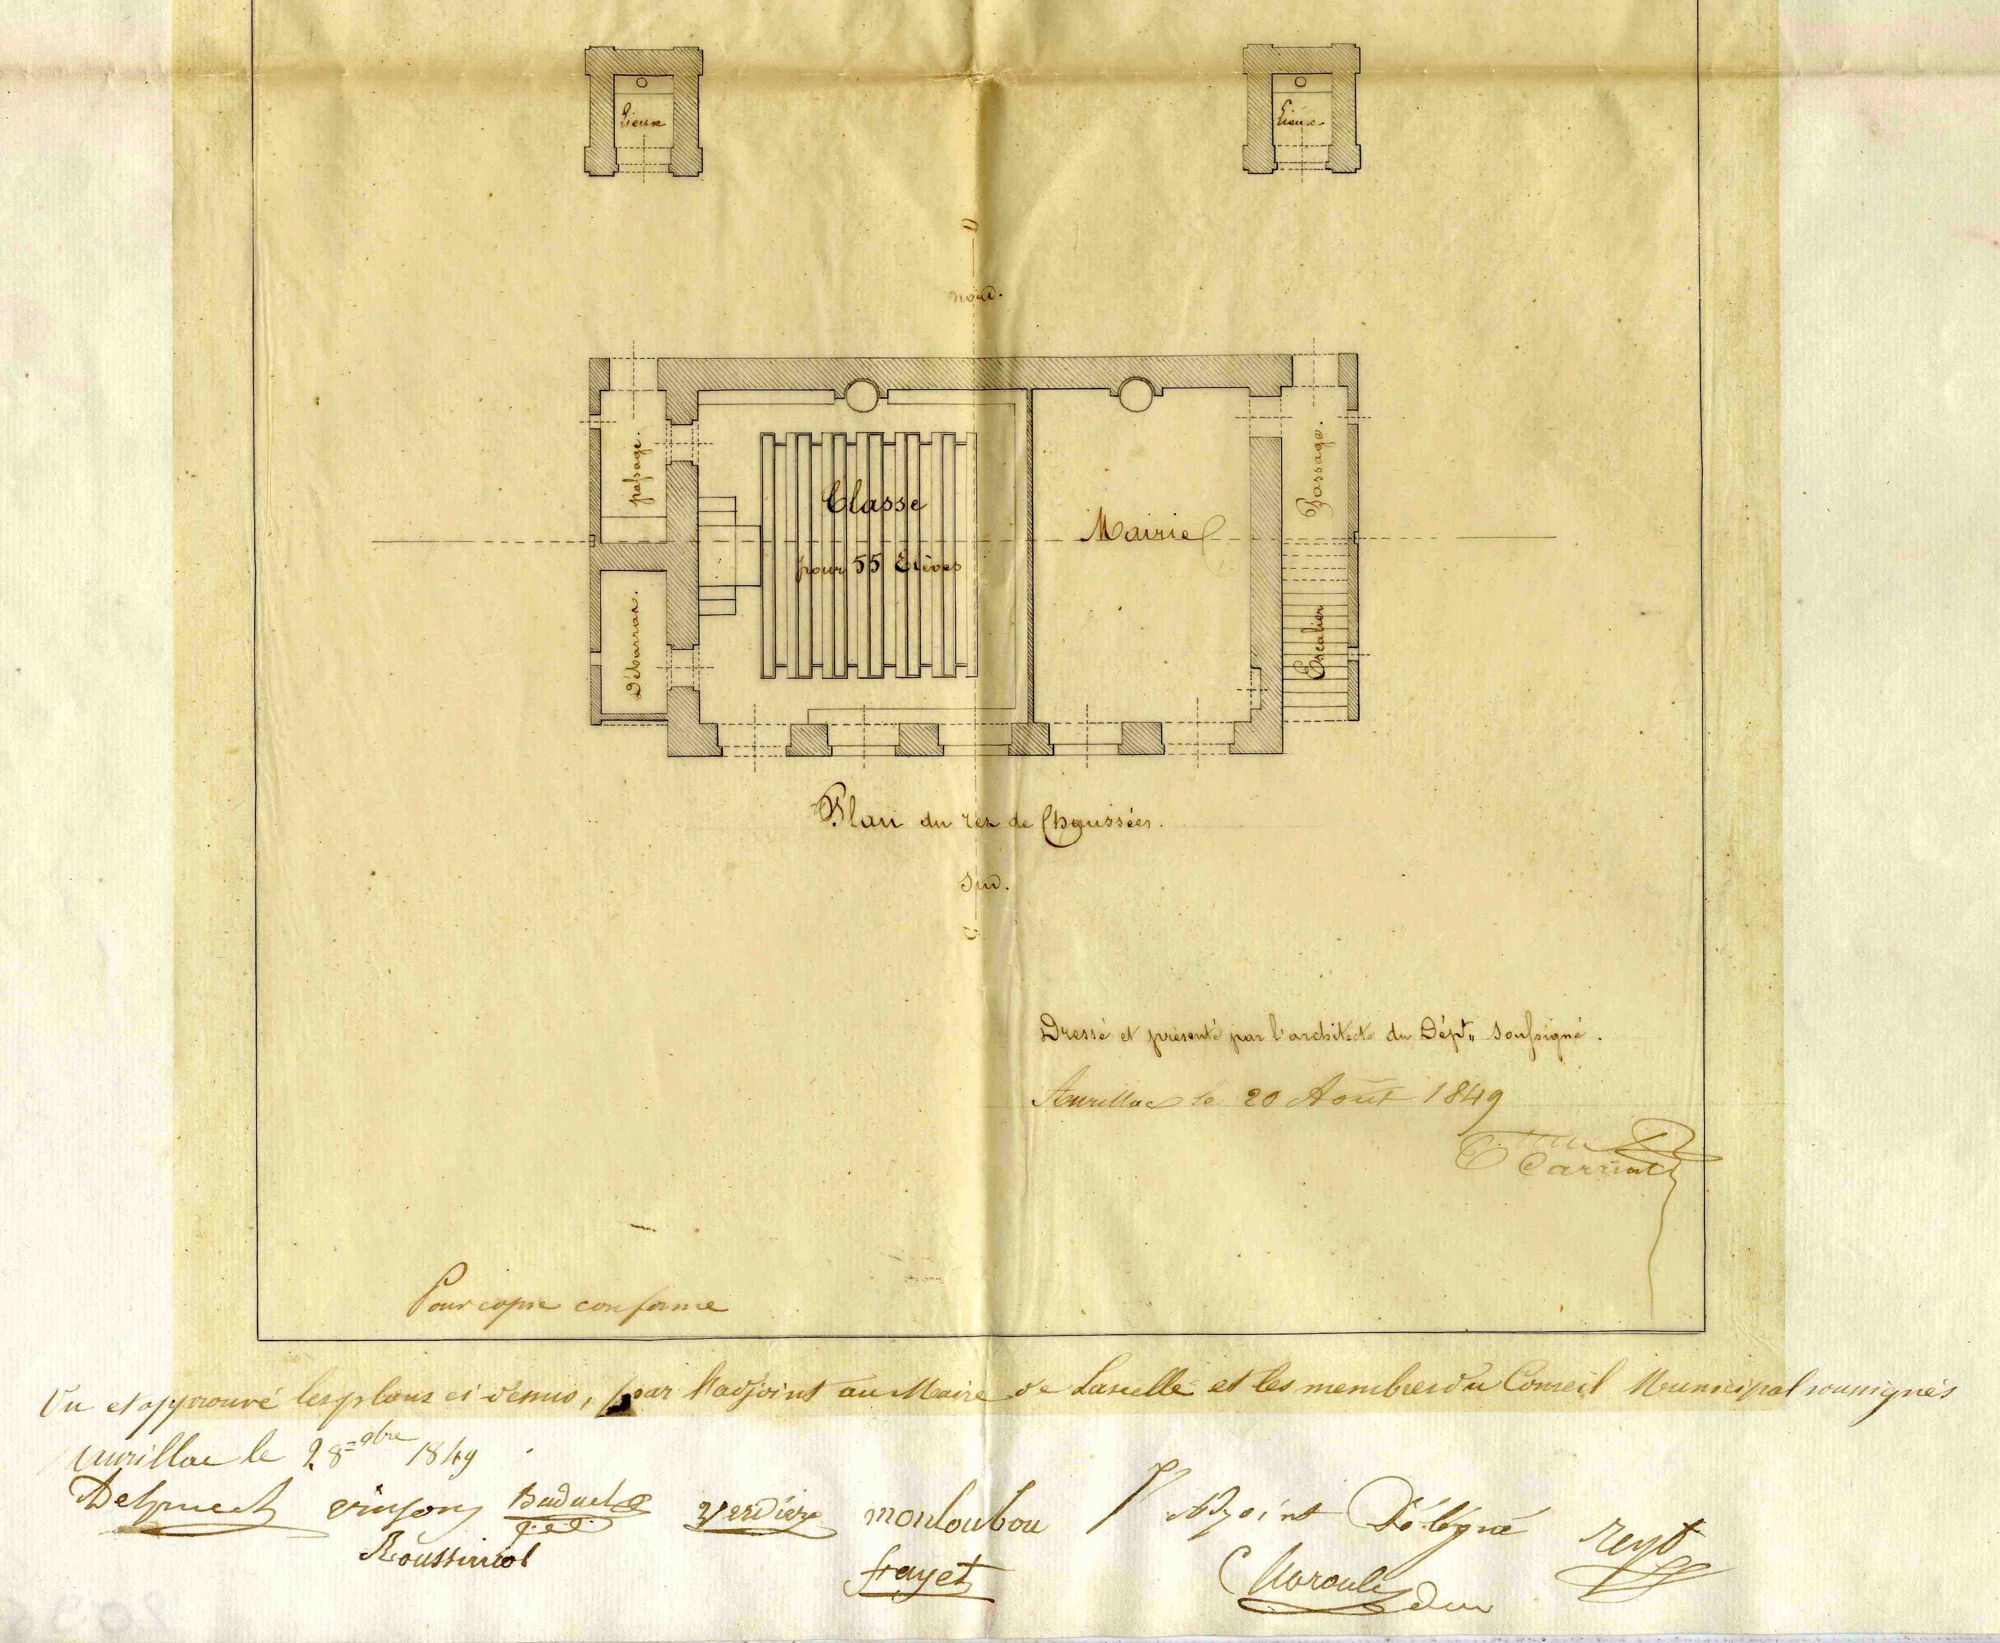 Lieux
Lieux
D
nord.
passage.
Classe
pour 55 Elèves
Mairie
Passage.
Débarras.
Escalier
Plan du rez de Chaussées.
Sud.
C
Dressé et présenté par l'architecte du Dépt. soussigné.
Aurillac le 20 Août 1849
Pour copie conforme
Vu et approuvé les plans ci dessus, par l'adjoint au Maire de Lascelle et les membres du Conseil Municipal soussignés
Aurillac le 28 9bre 1849
Delpuech
Verdière monloubou
l'adjoint Délégué
Roussinol
frayet